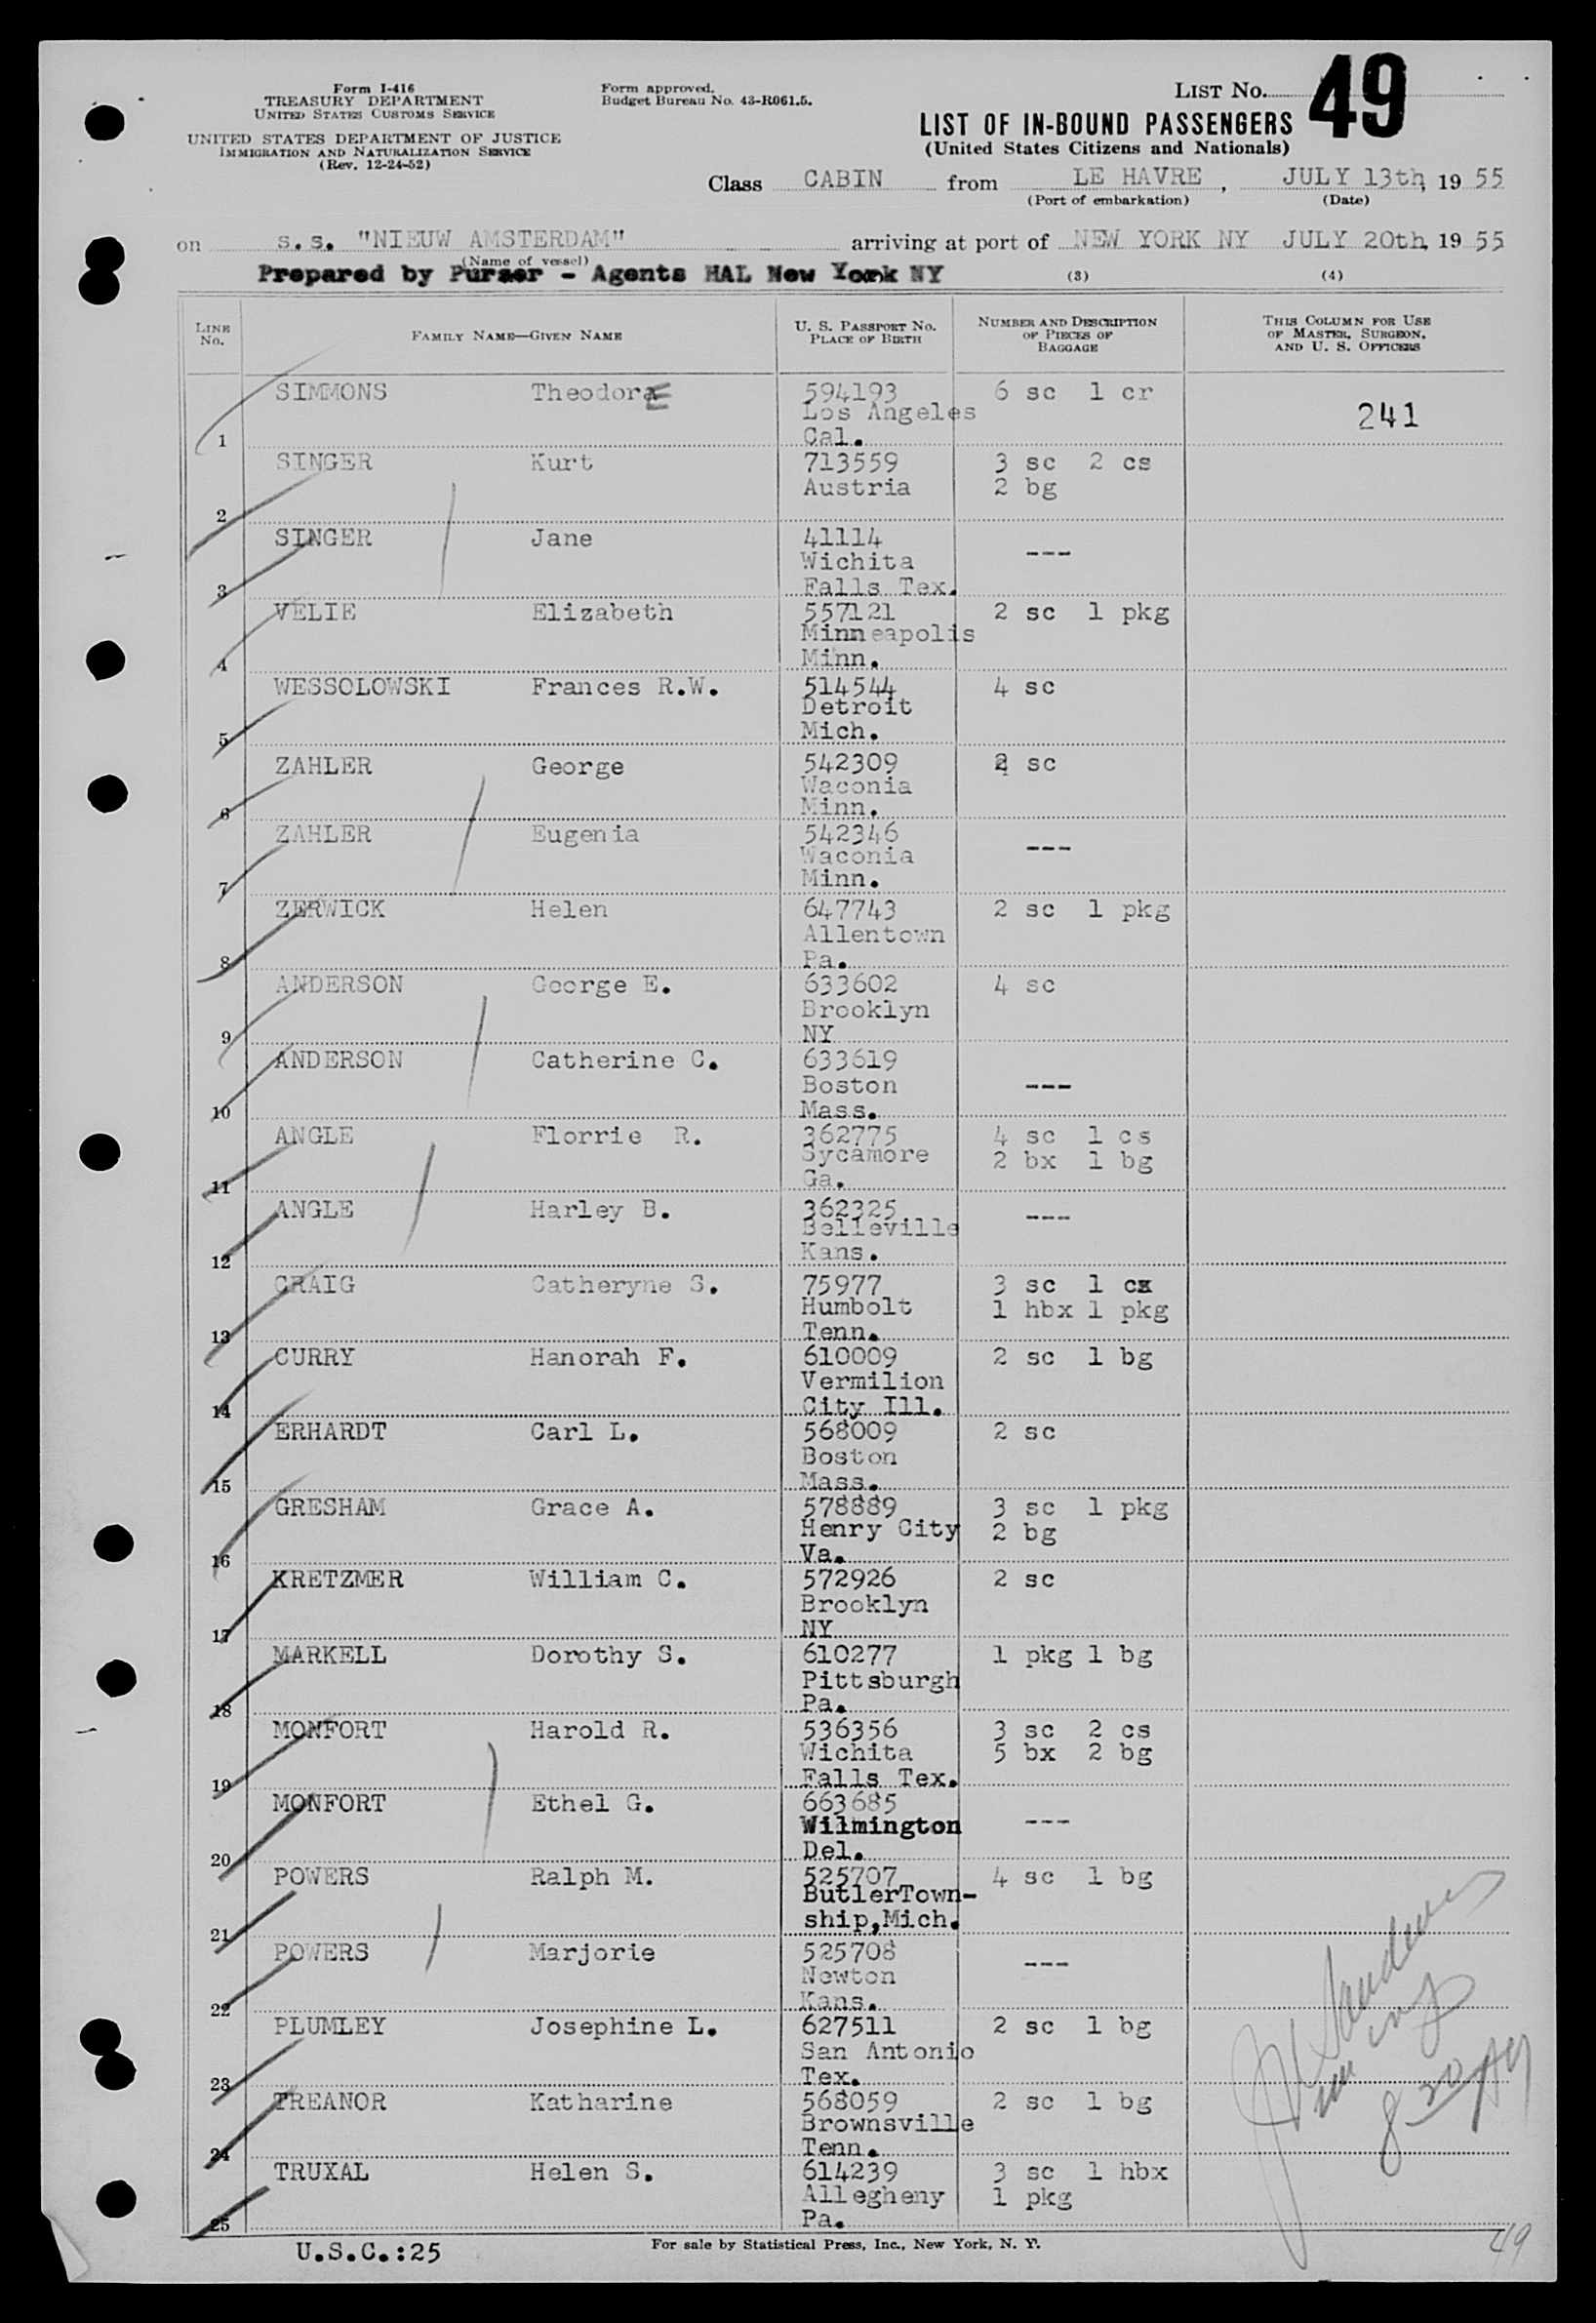 Form I-416
TREASURY DEPARTMENT
UNITED STATES CUSTOMS SERVICE
UNITED STATES DEPARTMENT OF JUSTICE
IMMIGRATION AND NATURALIZATION SERVICE
(Rev. 12-24-52)
Form approved.
Budget Bureau No. 43-R061.5.
LIST No. 49
LIST OF IN-BOUND PASSENGERS
(United States Citizens and Nationals)
Class CABIN from LE HAVRE, JULY 13th, 19 55
(Port of embarkation) (Date)
on s.s. "NIEUW AMSTERDAM" arriving at port of NEW YORK NY JULY 20th, 19 55
(Name of vessel)
Prepared by Purser - Agents HAL New York NY (3) (4)
LINE No. FAMILY NAME—GIVEN NAME U. S. PASSPORT No. PLACE OF BIRTH NUMBER AND DESCRIPTION OF PIECES OF BAGGAGE THIS COLUMN FOR USE OF MASTER, SURGEON, AND U. S. OFFICERS
SIMMONS Theodore 594193 6 sc 1 cr
Los Angeles 241
1 Cal.
SINGER Kurt 713559 3 sc 2 cs
Austria 2 bg
2
SINGER Jane 41114 ---
Wichita
3 Falls Tex.
VELIE Elizabeth 557121 2 sc 1 pkg
Minneapolis
4 Minn.
WESSOLOWSKI Frances R.W. 514544 4 sc
Detroit
5 Mich.
ZAHLER George 542309 sc
Waconia
6 Minn.
ZAHLER Eugenia 542346 ---
Waconia
7 Minn.
ZERWICK Helen 647743 2 sc 1 pkg
Allentown
8 Pa.
ANDERSON George E. 633602 4 sc
Brooklyn
9 NY
ANDERSON Catherine C. 633619
Boston ---
10 Mass.
ANGLE Florrie R. 362775 4 sc 1 cs
Sycamore 2 bx 1 bg
11 Ga.
ANGLE Harley B. 362325 ---
Belleville
12 Kans.
CRAIG Catheryne S. 75977 3 sc 1 cs
Humbolt 1 hbx 1 pkg
13 Tenn.
CURRY Hanorah F. 610009 2 sc 1 bg
Vermilion
14 City Ill.
ERHARDT Carl L. 568009 2 sc
Boston
15 Mass.
GRESHAM Grace A. 578889 3 sc 1 pkg
Henry City 2 bg
16 Va.
KRETZMER William C. 572926 2 sc
Brooklyn
17 NY
MARKELL Dorothy S. 610277 1 pkg 1 bg
Pittsburgh
18 Pa.
MONFORT Harold R. 536356 3 sc 2 cs
Wichita 5 bx 2 bg
19 Falls Tex.
MONFORT Ethel G. 663685 ---
Wilmington
20 Del.
POWERS Ralph M. 525707 4 sc 1 bg
ButlerTown-
21 ship,Mich.
POWERS Marjorie 525708 ---
Newton
22 Kans.
PLUMLEY Josephine L. 627511 2 sc 1 bg
San Antonio
23 Tex.
TREANOR Katharine 568059 2 sc 1 bg
Brownsville
24 Tenn.
TRUXAL Helen S. 614239 3 sc 1 hbx
Allegheny 1 pkg
25 Pa.
U.S.C.:25
For sale by Statistical Press, Inc., New York, N. Y.
49